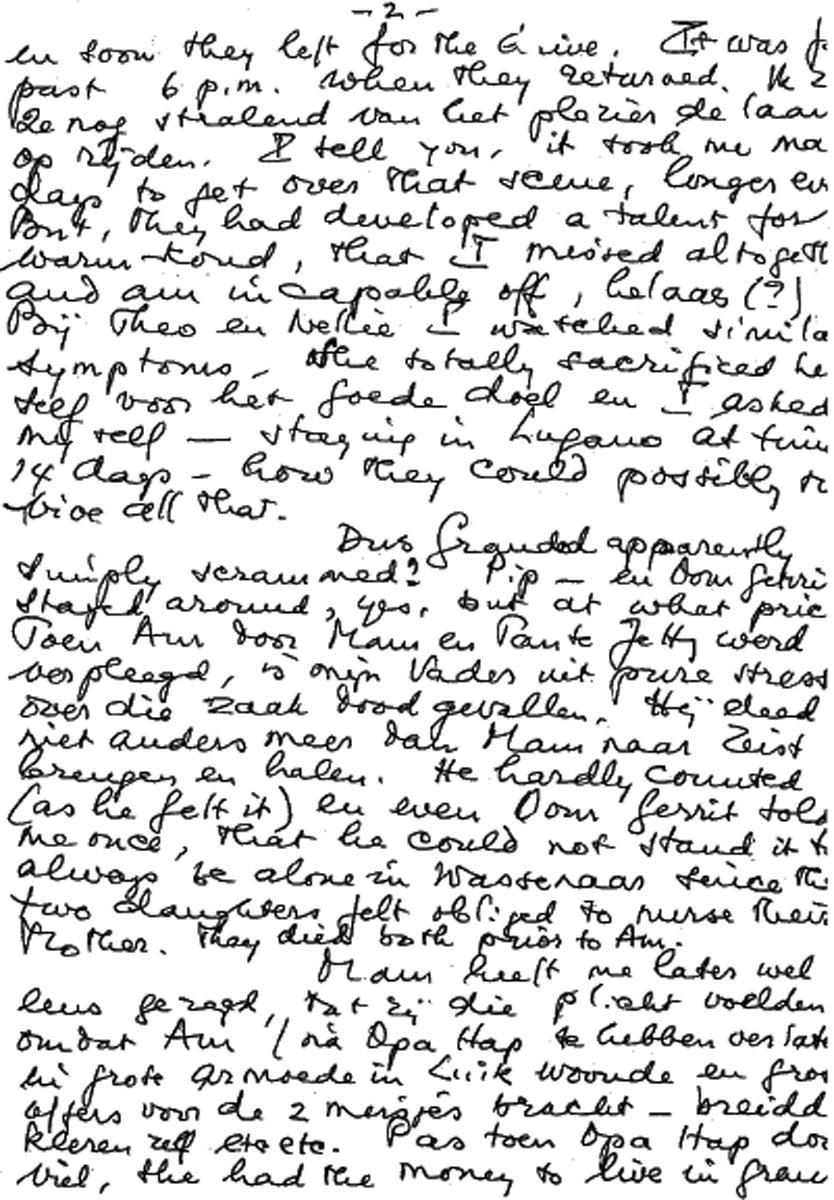 - 2 -
en soon they left for the Guive. It was
past 6 p.m. when they returned. Ik
ze nog stralend van het plezier de laan
op rijden. I tell you, it took me
days to get over that scene, longer
But, they had developed a talent for
warm-koud, that I missed
and am incapable off, helaas (?)
Bij Theo en Nellie I watched
symptoms - She totally sacrificed
self voor het goede doel en I asked
my self — staying in Lugano at
14 days - how they could possibly
vive all that.
Dus Grandad apparently
simply scrammed? Pip - en Oom
stayed around, yes, but at what
Toen Am door Mam en Tante Jetty werd
verpleegd, is mijn Vader uit pure stress
over die zaak dood gevallen. Hij deed
niet anders meer dan Mam naar Zeist
brengen en halen. He hardly counted
(as he felt it) en even Oom Gerrit told
me once, that he could not stand it
always be alone in Wassenaar since
two daughters felt obliged to nurse their
Mother. They died both prior to Am.
Mam heeft me later wel
eens gezegd, dat zij die plicht voelden
omdat Am (na Opa Hap te hebben
in grote armoede in Luik woonde en
offers voor de 2 meisjes bracht -
kleren zelf etc etc. Pas toen Opa Hap
viel, she had the money to live in